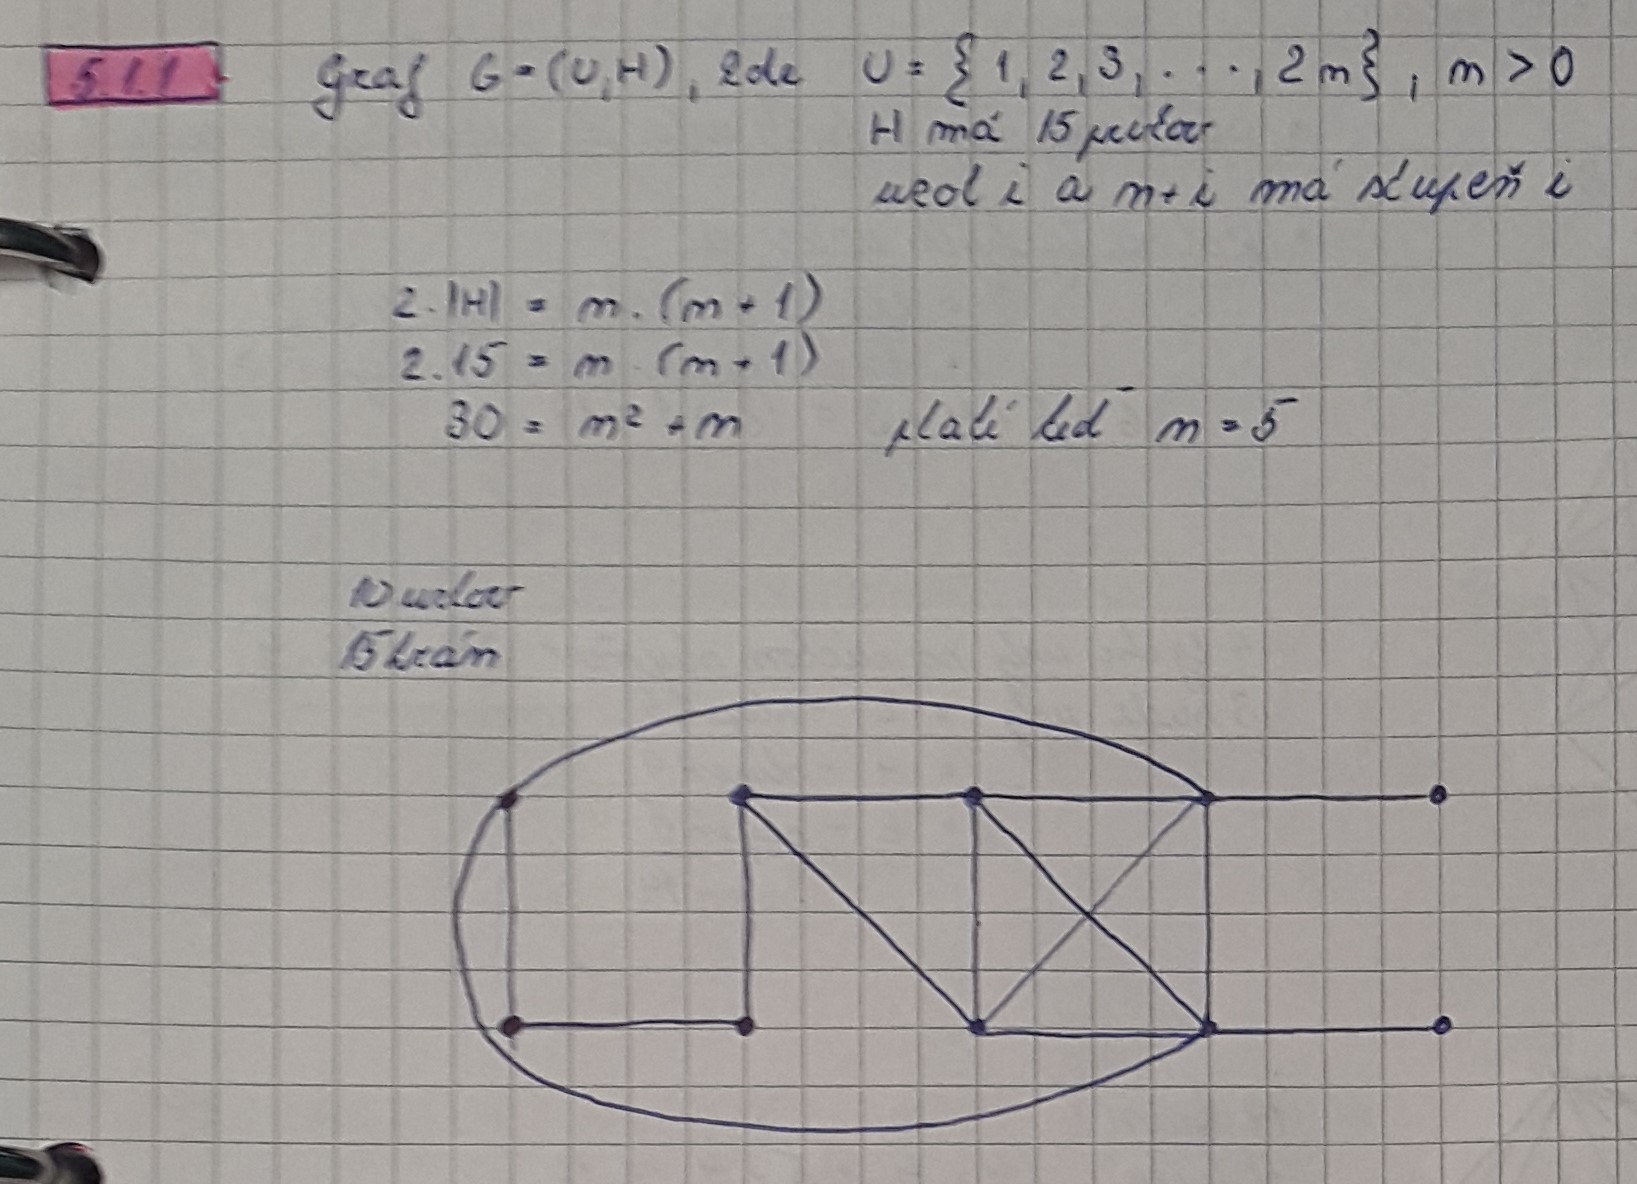 5.1.1 Graf G = (U,H), kde U = {1, 2, 3, . . . , 2m}, m > 0
H má 15 prvkov
uzol i a m+i má stupeň i
2.|H| = m.(m+1)
2.15 = m.(m+1)
30 = m² + m platí keď m = 5
10 uzlov
15 hrán